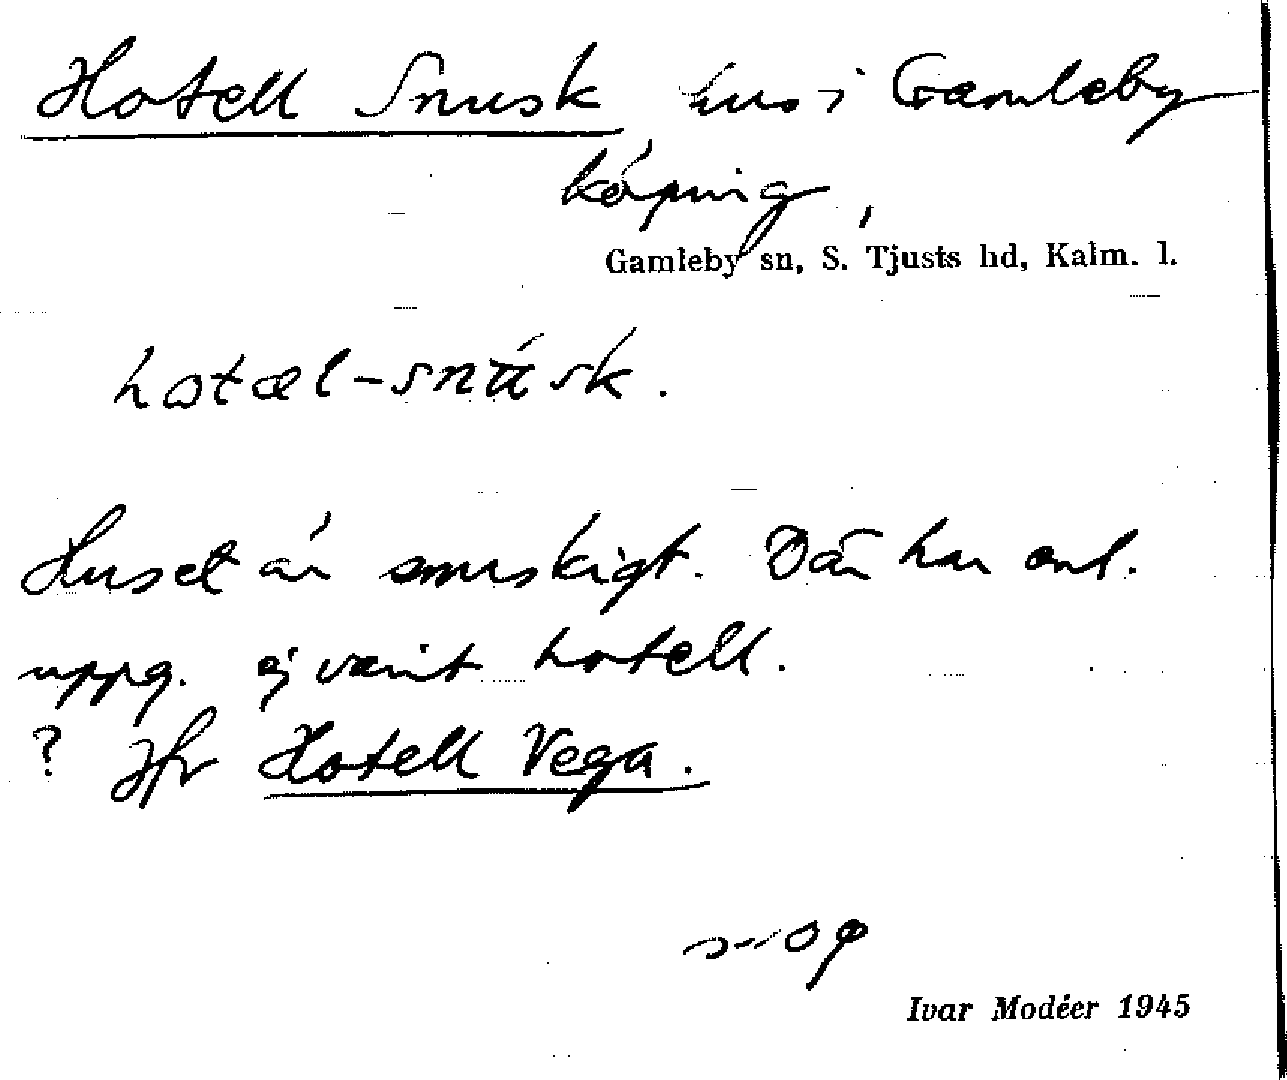 Hotell Snusk hus i Gamleby
köping
Gamleby sn, S. Tjusts hd, Kalm. l.
hotæl-snusk.
Huset är snuskigt. Där har enl.
uppg. ej varit hotell.
? Jfr Hotell Vega.
Ivar Modéer 1945